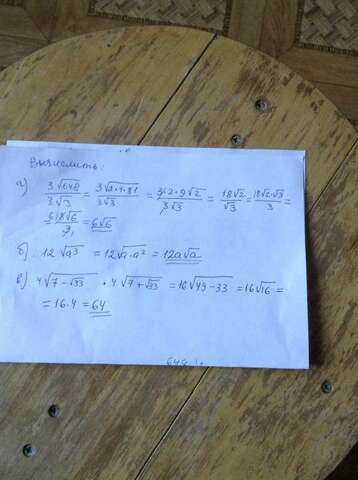 Вычислить:
а) 3√648 / 3√3 = 3√2·4·81 / 3√3 = 3·2·9√2 / 3√3 = 18√2 / √3 = 18√2·√3 / 3 =
= 6 18√6 / 3, = 6√6
б) 12√a³ = 12√a·a² = 12a√a
в) 4√7-√33 · 4√7+√33 = 16√49-33 = 16√16 =
= 16·4 = 64